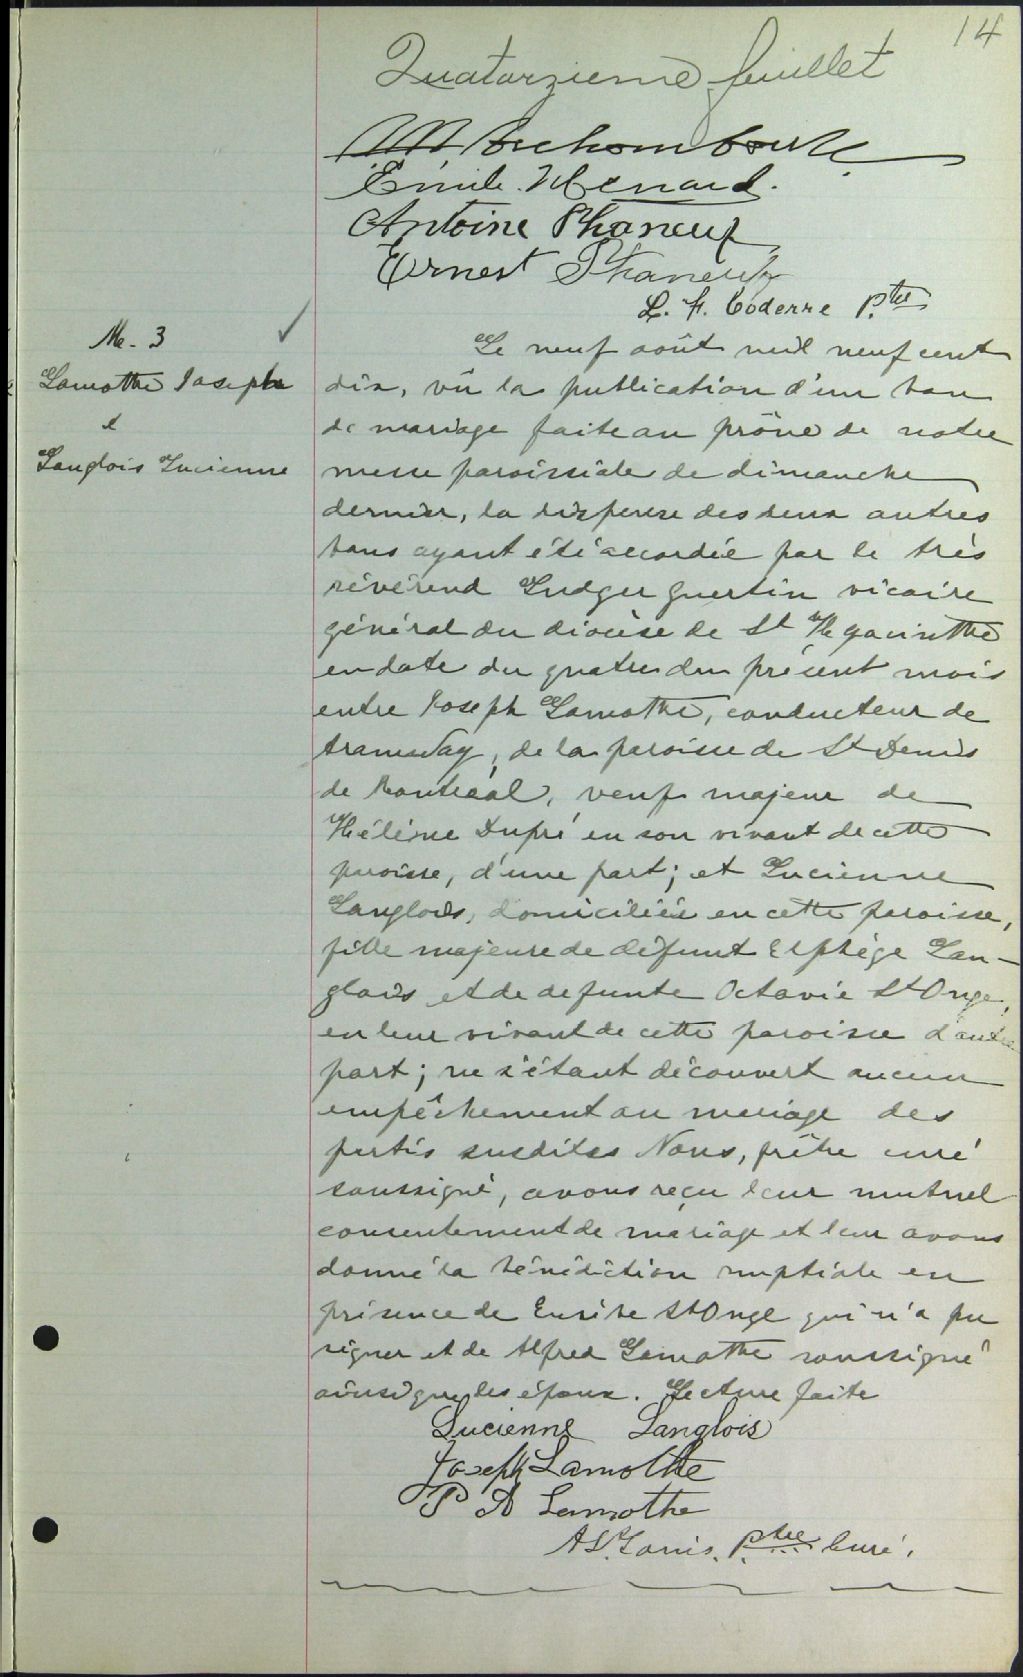 14
Quatorzieme feuillet
Archambault
Emile Menard.
Antoine Phaneuf
Ernest Phaneuf
L. F. Coderre Ptre
M- 3
Lamothe Joseph
&
Langlois Lucienne
Le neuf août mil neuf cent
dix, vû la publication d'un ban
de mariage faite au prône de notre
messe paroissiale de dimanche
dernier, la dispense des deux autres
bans ayant été accordée par le très
révérend Ludger Guertin vicaire
général du diocèse de St Hyacinthe
en date du quatre du présent mois
entre Joseph Lamothe, conducteur de
tramway, de la paroisse de St Denis
de Montréal, veuf majeur de
Hélène Dupré en son vivant de cette
paroisse, d'une part; et Lucienne
Langlois, domiciliée en cette paroisse,
fille majeure de défunt Elphège Lan-
glois et de defunte Octavie St Onge,
en leur vivant de cette paroisse d'autre
part; ne s'étant découvert aucun
empêchement au mariage des
partis susdites Nous, prêtre curé
soussigné, avons reçu leur mutuel
consentement de mariage et leur avons
donné la bénédiction nuptiale en
présence de St Onge qui n'a pu
signer et de Alfred Lamothe soussigné
ainsi que les époux. Lecture faite
Lucienne Langlois
Joseph Lamothe
P A Lamothe
Ptre Curé.